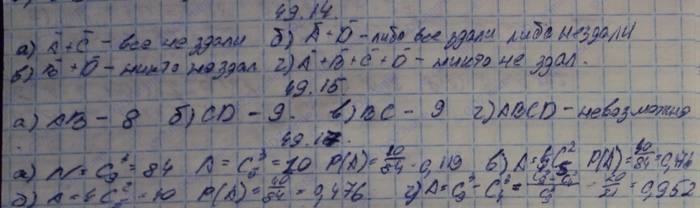 49.14.
а) Ā+C̄ - все не здали б) Ā+D̄ - либо все здали либо нездали
в) B̄+D̄ - никто нездал г) Ā+B̄+C̄+D̄ - никто не здал.
49.15.
а) AB - 8 б) CD - 9. в) BC - 9 г) ABCD - невозможно
49.17.
а) N = C₉³ = 84 A = = 10 P(A) = 10/84 = 0,119 в) P(A) = 40/84 = 0,476
б) = 40 P(A) = 40/84 = 0,476. г) = 20/21 = 0,952